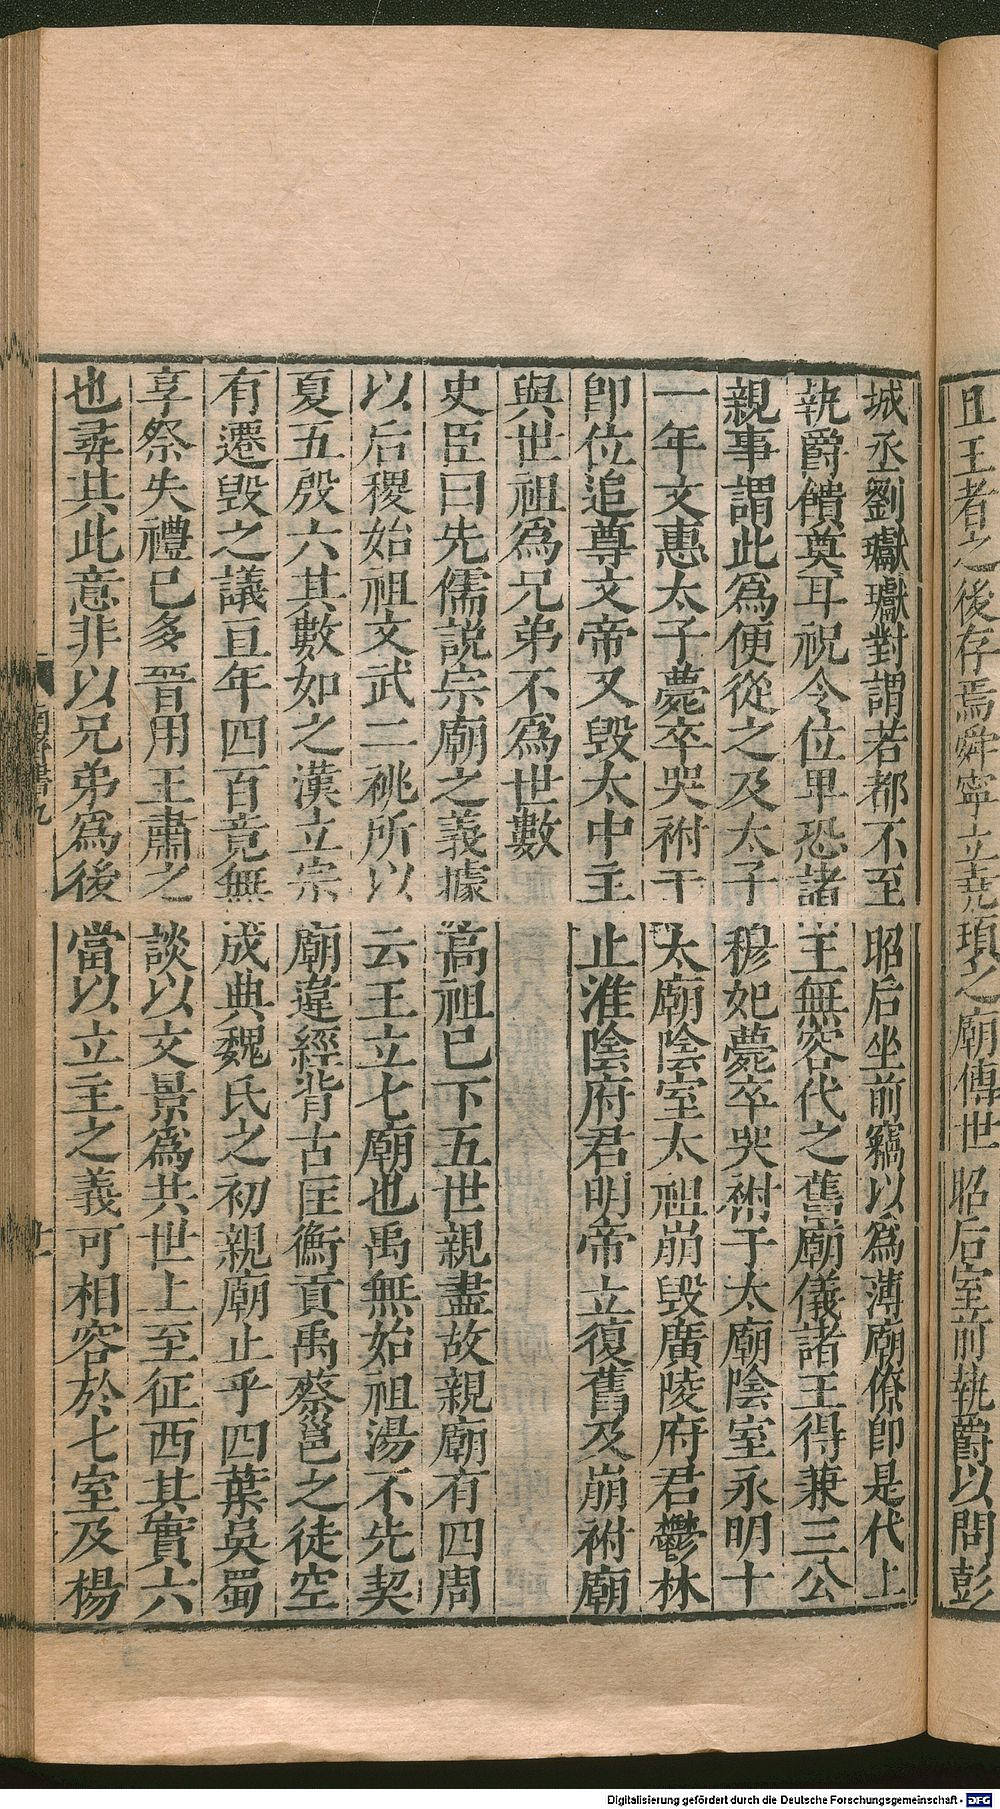 且王者之後存焉舜寧立堯頊之廟傳世昭后室前執爵以問彭
城丞劉瓛瓛對謂若都不至昭后坐前竊以爲薄廟僚即是代上
執爵饋奠耳祝令位卑恐諸王無容代之舊廟儀諸王得兼三公
親事謂此爲便從之及太子穆妃薨卒哭祔于太廟陰室永明十
一年文惠太子薨卒哭祔于太廟陰室太祖崩毀廣陵府君鬱林
即位追尊文帝又毀太中主止淮陰府君明帝立復舊及崩祔廟
與世祖爲兄弟不爲世數
史臣曰先儒說宗廟之義據高祖已下五世親盡故親廟有四周
以后稷始祖文武二祧所以云王立七廟也禹無始祖湯不先契
夏五殷六其數如之漢立宗廟違經背古匡衡貢禹蔡邕之徒空
有遷毀之議亘年四百竟無成典魏氏之初親廟止乎四葉吳蜀
享祭失禮已多晉用王肅之談以文景爲共世上至征西其實六
也尋其此意非以兄弟爲後當以立主之義可相容於七室及楊
南齊書九
廿一
Digitalisierung gefördert durch die Deutsche Forschungsgemeinschaft - DFG